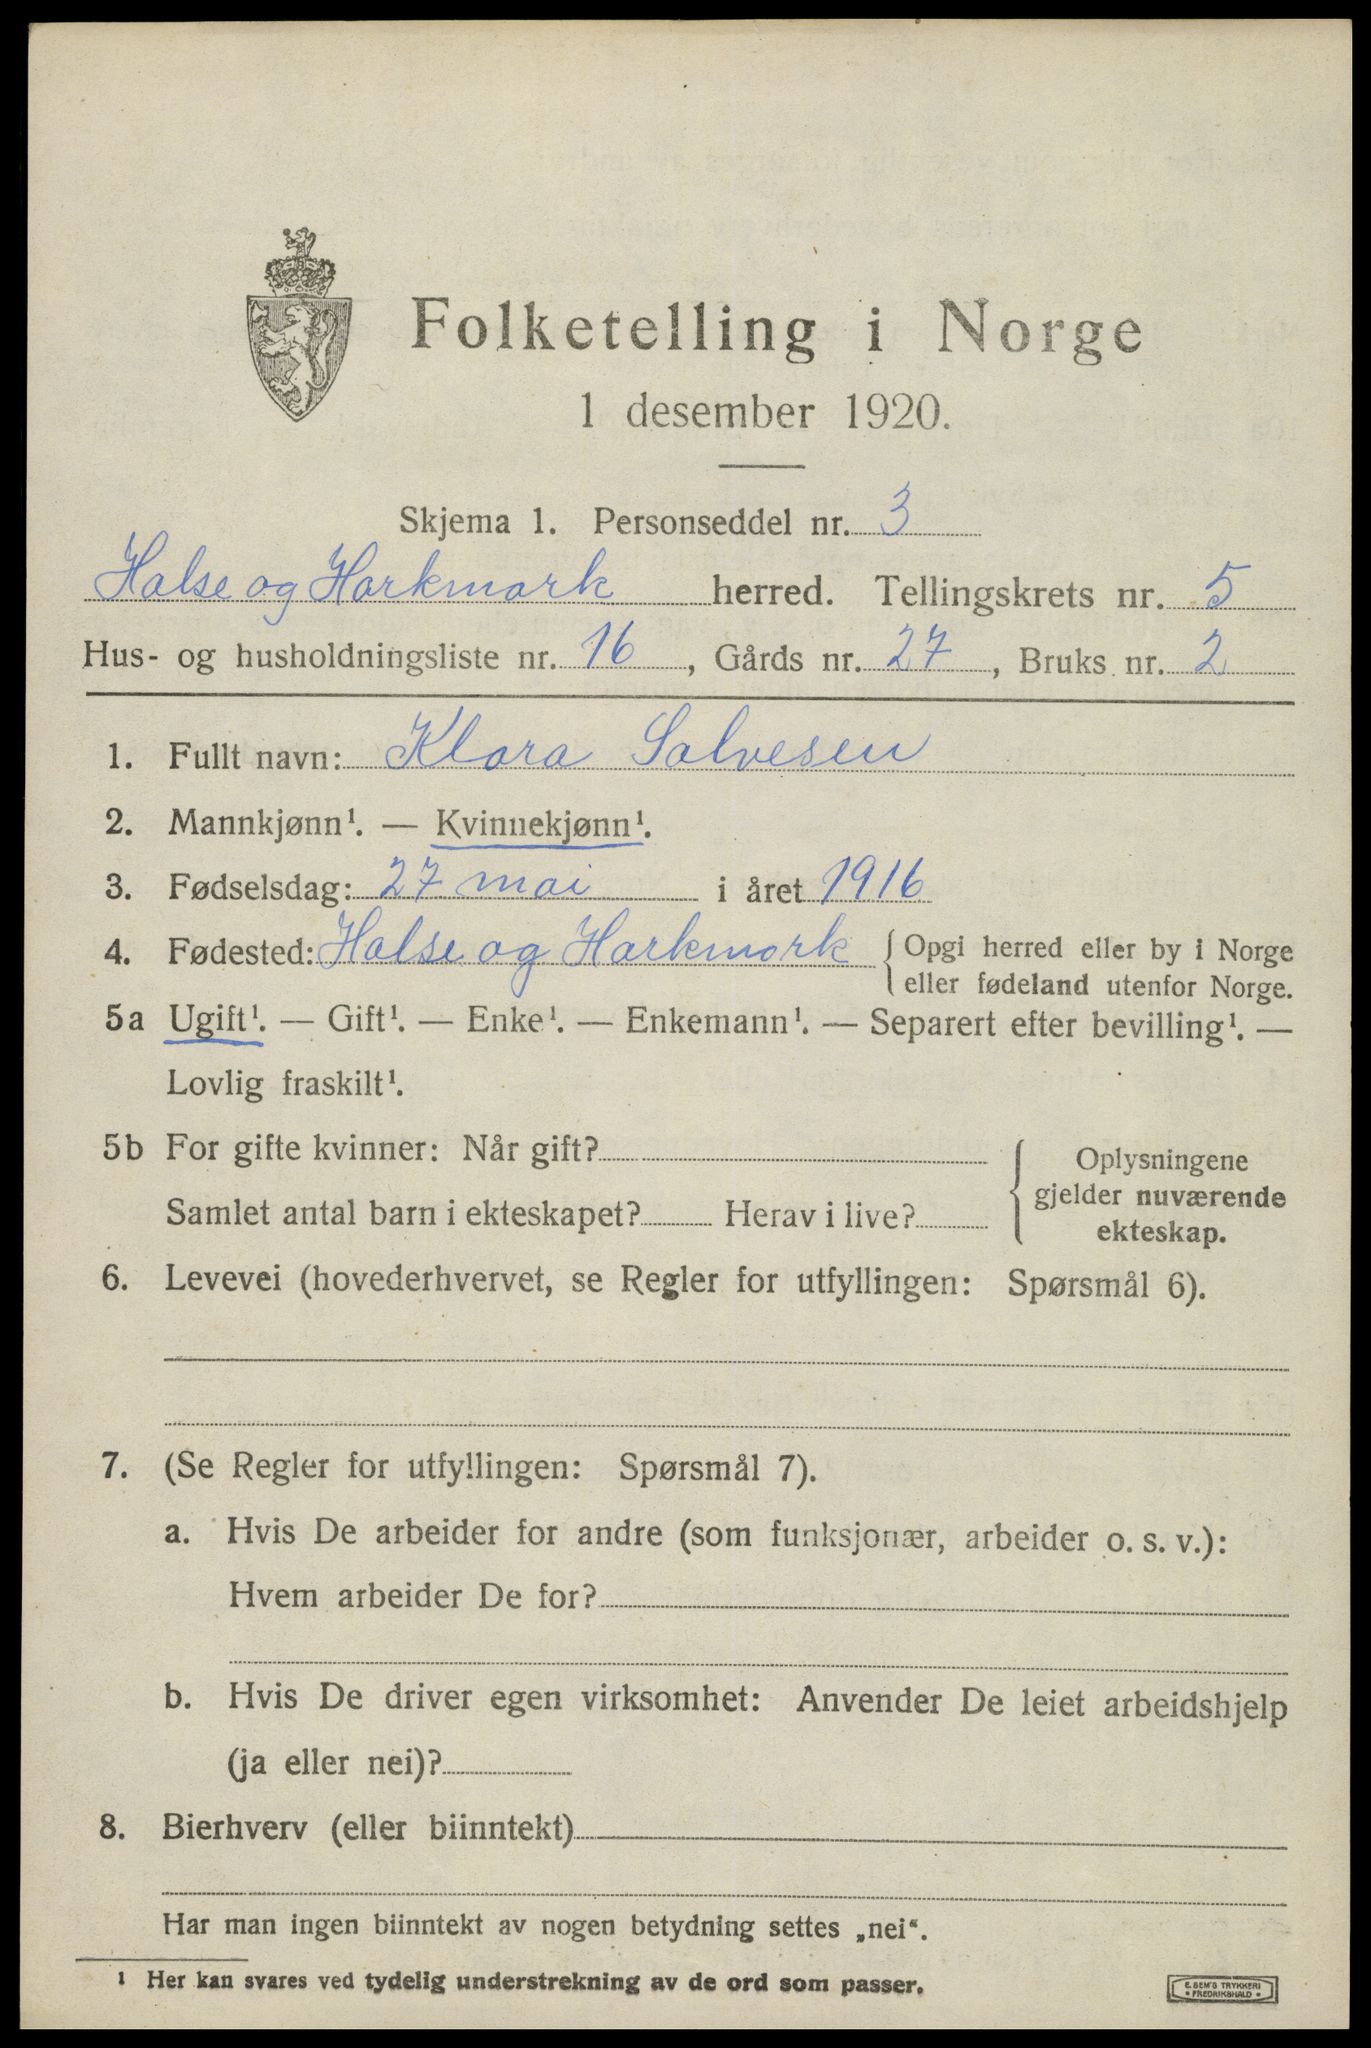 Folketelling i Norge
1 desember 1920.
Skjema 1. Personseddel nr. 3
Halse og Harkmark herred. Tellingskrets nr. 5
Hus- og husholdningsliste nr. 16, Gårds nr. 27, Bruks nr. 2
1. Fullt navn: Klara Salvesen
2. Mannkjønn¹. — Kvinnekjønn¹.
3. Fødselsdag: 27 mai i året 1916
4. Fødested: Halse og Harkmark { Opgi herred eller by i Norge
eller fødeland utenfor Norge.
5a Ugift¹. — Gift¹. — Enke¹. — Enkemann¹. — Separert efter bevilling¹. —
Lovlig fraskilt¹.
5b For gifte kvinner: Når gift? { Oplysningene
gjelder nuværende
Samlet antal barn i ekteskapet? Herav i live?
ekteskap.
6. Levevei (hovederhvervet, se Regler for utfyllingen: Spørsmål 6).
7. (Se Regler for utfyllingen: Spørsmål 7).
a. Hvis De arbeider for andre (som funksjonær, arbeider o. s. v.):
Hvem arbeider De for?
b. Hvis De driver egen virksomhet: Anvender De leiet arbeidshjelp
(ja eller nei)?
8. Bierhverv (eller biinntekt)
Har man ingen biinntekt av nogen betydning settes „nei“.
1 Her kan svares ved tydelig understrekning av de ord som passer.
E. SEM'S TRYKKERI
• FREDRIKSHALD •